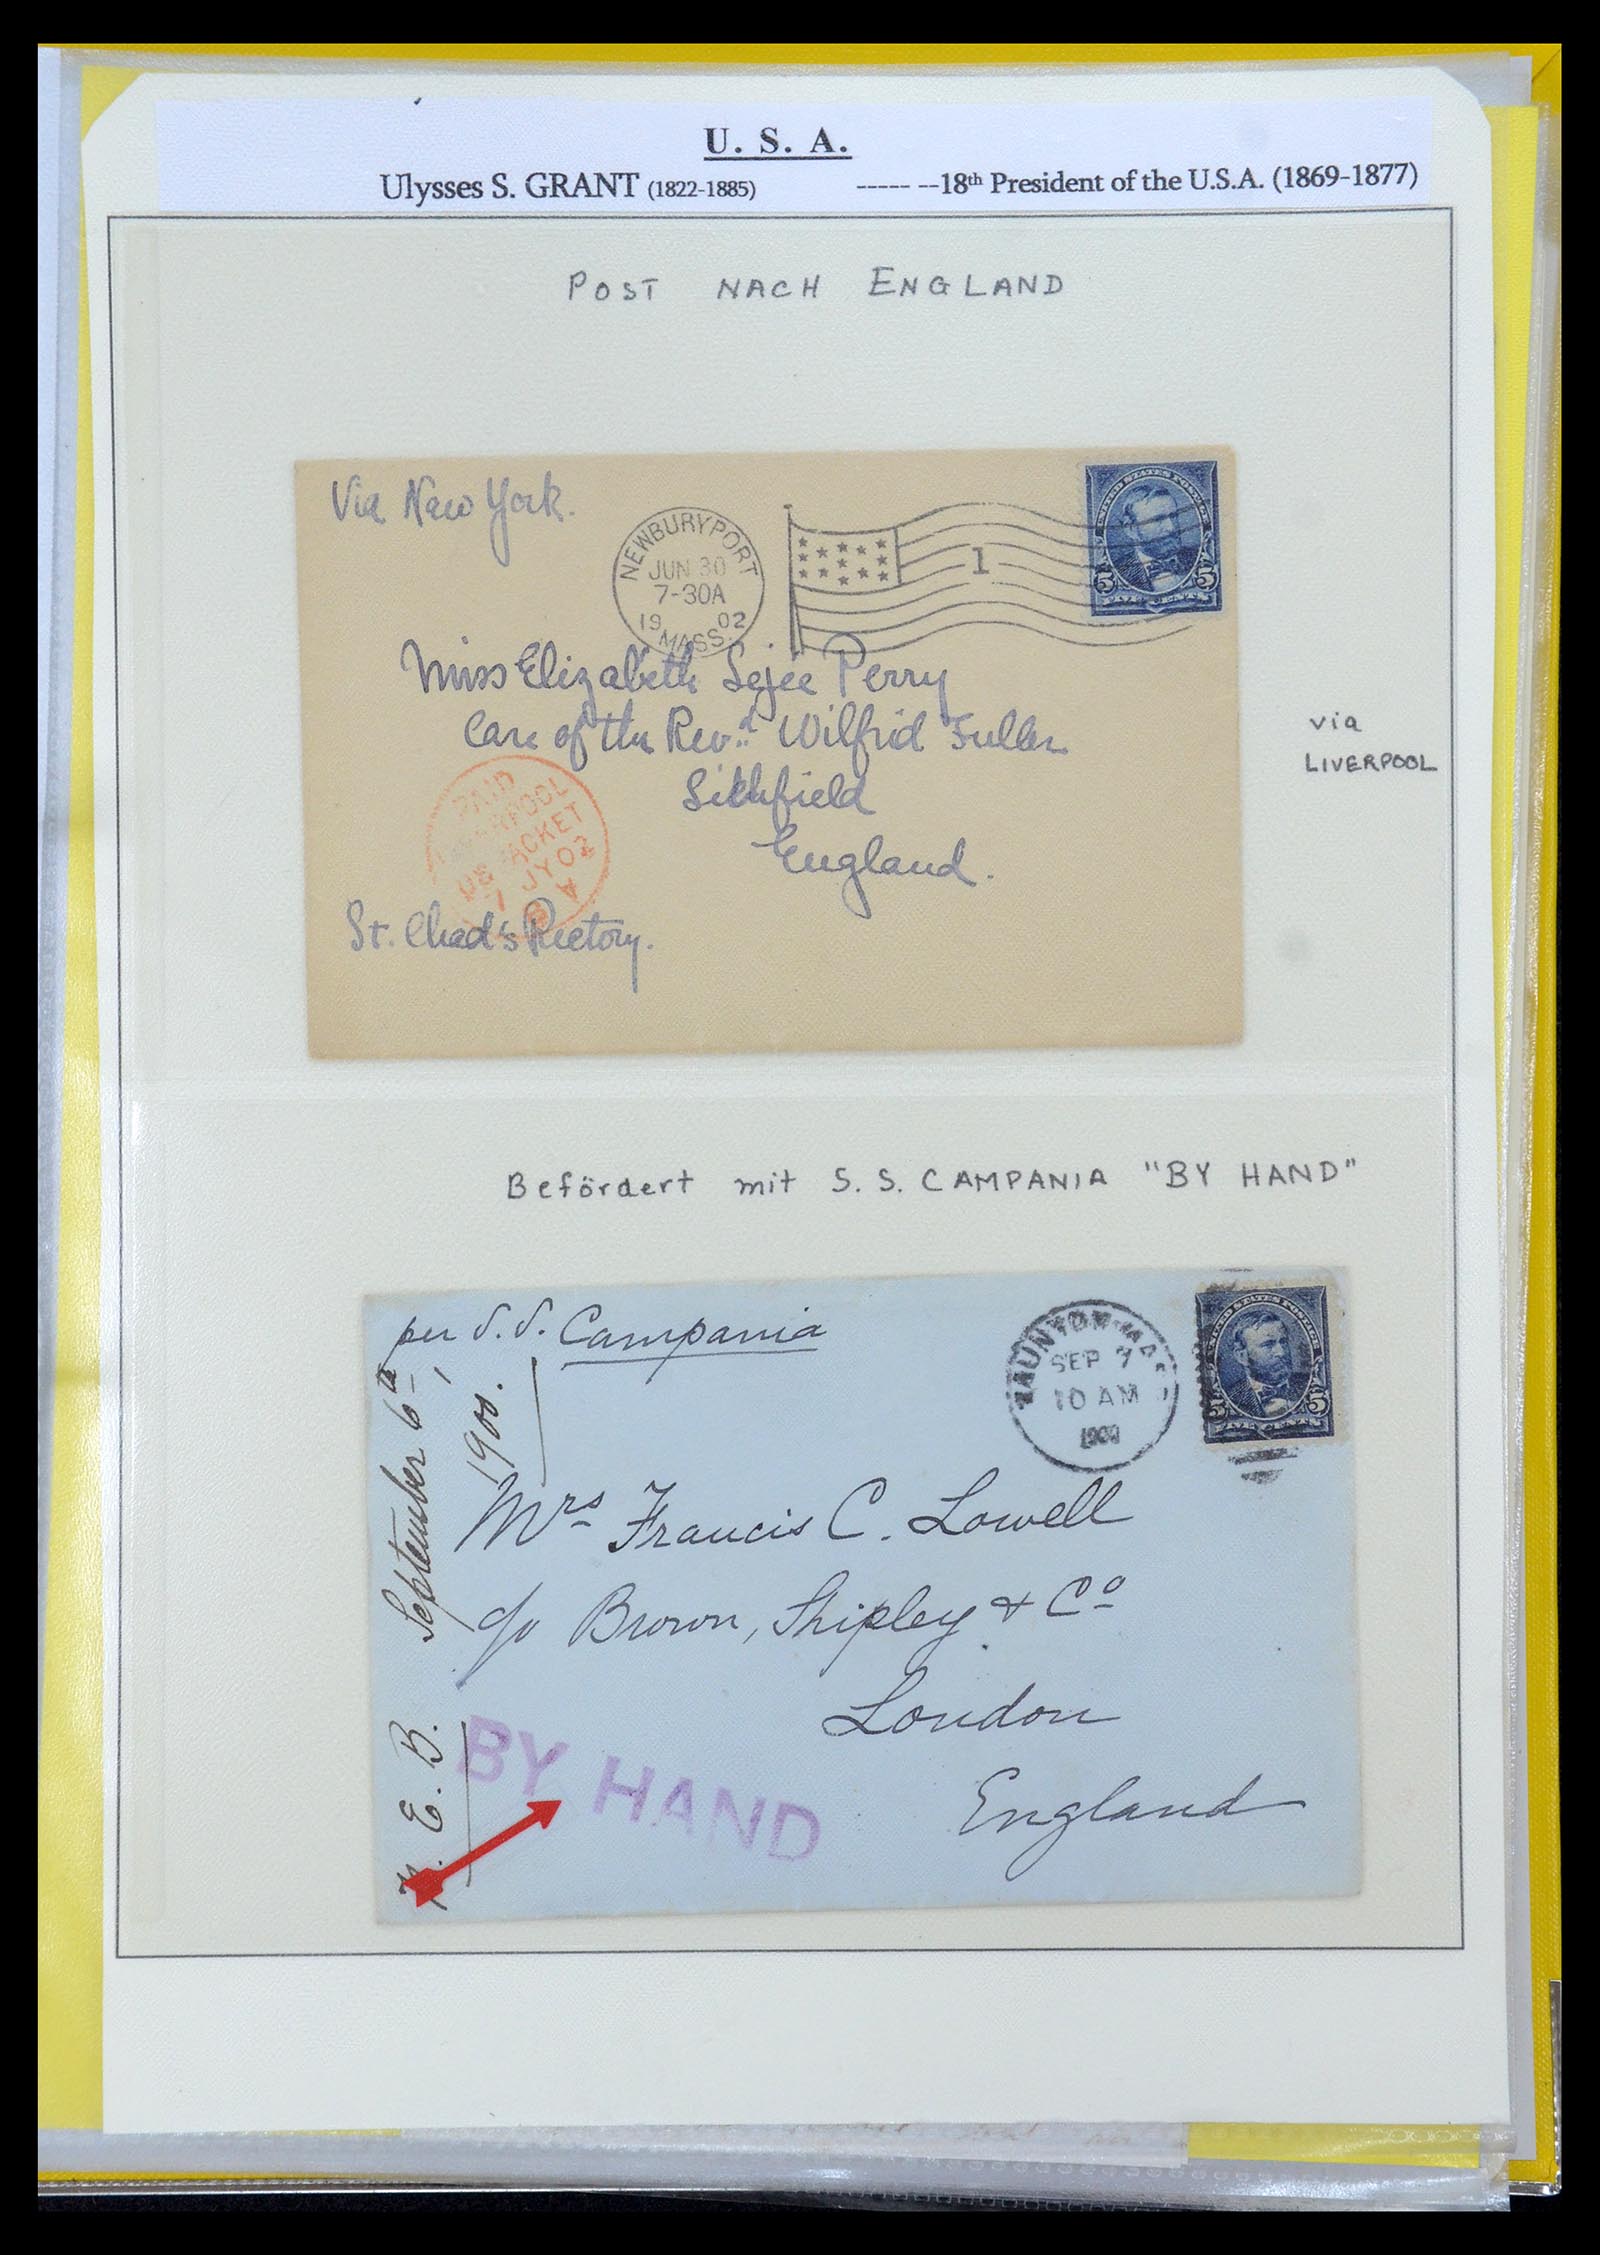 U. S. A.
Ulysses S. GRANT (1822-1885) ----- --18th President of the U.S.A. (1869-1877)
POST NACH ENGLAND
Via New York.
NEWBURYPORT
JUN 30
7-30A
19 02
MASS.
1
UNITED STATES POSTAGE
5 5
FIVE CENTS
Miss Elizabeth Sejee Perry
Care of the Revd. Wilfrid Fuller
Lichfield
England.
PAID
LIVERPOOL
US PACKET
7 JY 02
St. Chad's Rectory.
via
LIVERPOOL
Befördert mit S. S. CAMPANIA "BY HAND"
per S.S. Campania
September 6th
1900.
TAUNTON, MASS.
SEP 7
10 AM
1900
UNITED STATES POSTAGE
5 5
FIVE CENTS
Mrs Francis C. Lowell
c/o Brown, Shipley & Co
London
England
E. B.
BY HAND